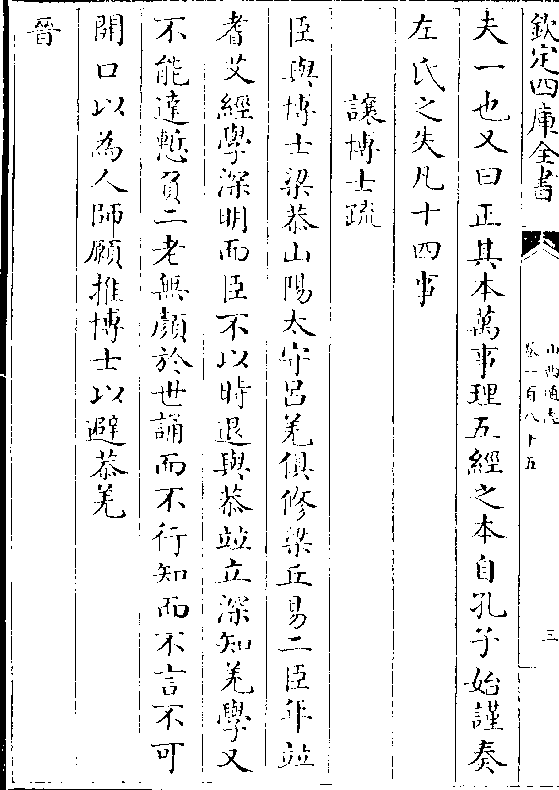 欽定四庫全書
山西通志
卷一百八十五
三
夫一也又曰正其本萬事理五經之本自孔子始謹奏
左氏之失凡十四事
讓博士疏
臣與博士梁恭山陽太守呂羌俱修梁丘易二臣年並
耆艾經學深明而臣不以時退與恭並立深知羌學又
不能達慙負二老無顔於世誦而不行知而不言不可
開口以為人師願推博士以避恭羌
晉